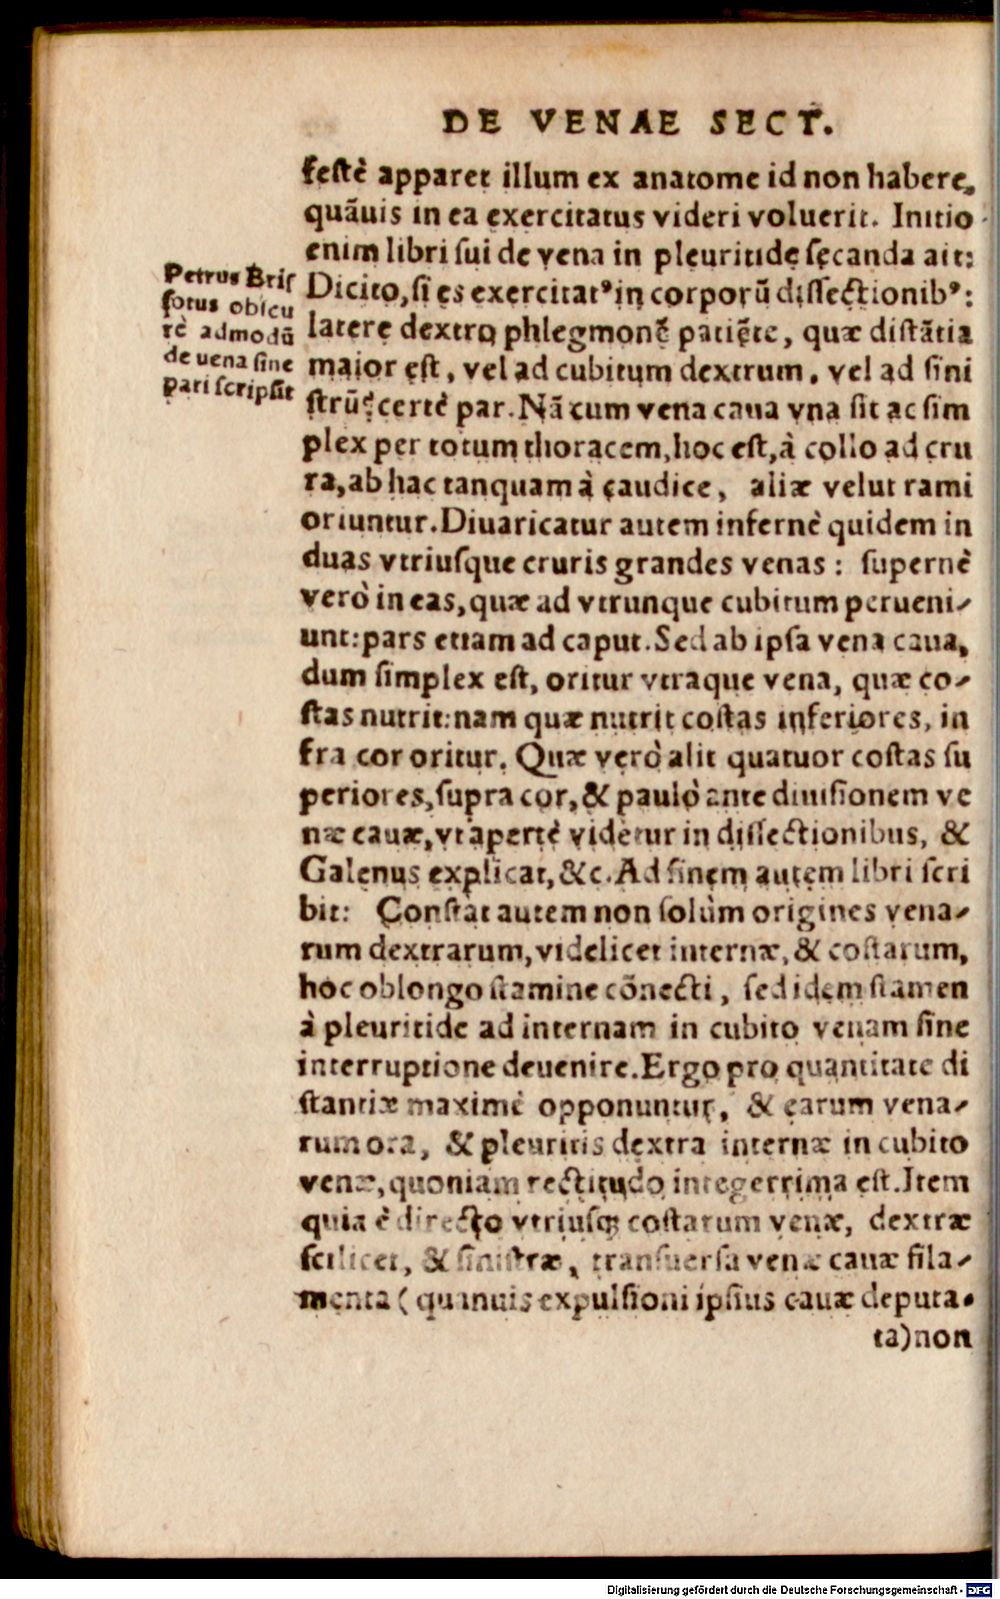 DE VENAE SECT.
festè apparet illum ex anatome id non habere,
quãuis in ea exercitatus videri voluerit. Initio
enim libri sui de vena in pleuritide secanda ait:
Petrus Bris
sotus obscu
rè admodũ
de uena sine
pari scripsit
Dicito, si es exercitatꝰ in corporũ dissectionibꝰ:
latere dextro phlegmonẽ patiẽte, quæ distãtia
maior est, vel ad cubitum dextrum, vel ad sini
strũ? certè par. Nã cum vena caua vna sit ac sim
plex per totum thoracem, hoc est, à collo ad cru
ra, ab hac tanquam à caudice, aliæ velut rami
oriuntur. Diuaricatur autem infernè quidem in
duas vtriusque cruris grandes venas: supernè
verò in eas, quæ ad vtrunque cubitum perueni-
unt: pars etiam ad caput. Sed ab ipsa vena caua,
dum simplex est, oritur vtraque vena, quæ co-
stas nutrit: nam quæ nutrit costas inferiores, in
fra cor oritur. Quæ verò alit quatuor costas su
periores, supra cor, & paulò ante diuisionem ve
næ cauæ, vt apertè videtur in dissectionibus, &
Galenus explicat, &c. Ad finem autem libri scri
bit: Constat autem non solùm origines vena-
rum dextrarum, videlicet internæ, & costarum,
hoc oblongo stamine cõnecti, sed idem stamen
à pleuritide ad internam in cubito venam sine
interruptione deuenire. Ergo pro quantitate di
stantiæ maximè opponuntur, & earum vena-
rum ora, & pleuritis dextra internæ in cubito
venæ, quoniam rectitudo integerrima est. Item
quia è directo vtriusqꝫ costarum venæ, dextræ
scilicet, & sinistræ, transuersa venæ cauæ fila-
menta (quamuis expulsioni ipsius cauæ deputa-
ta) non
Digitalisierung gefördert durch die Deutsche Forschungsgemeinschaft - DFG